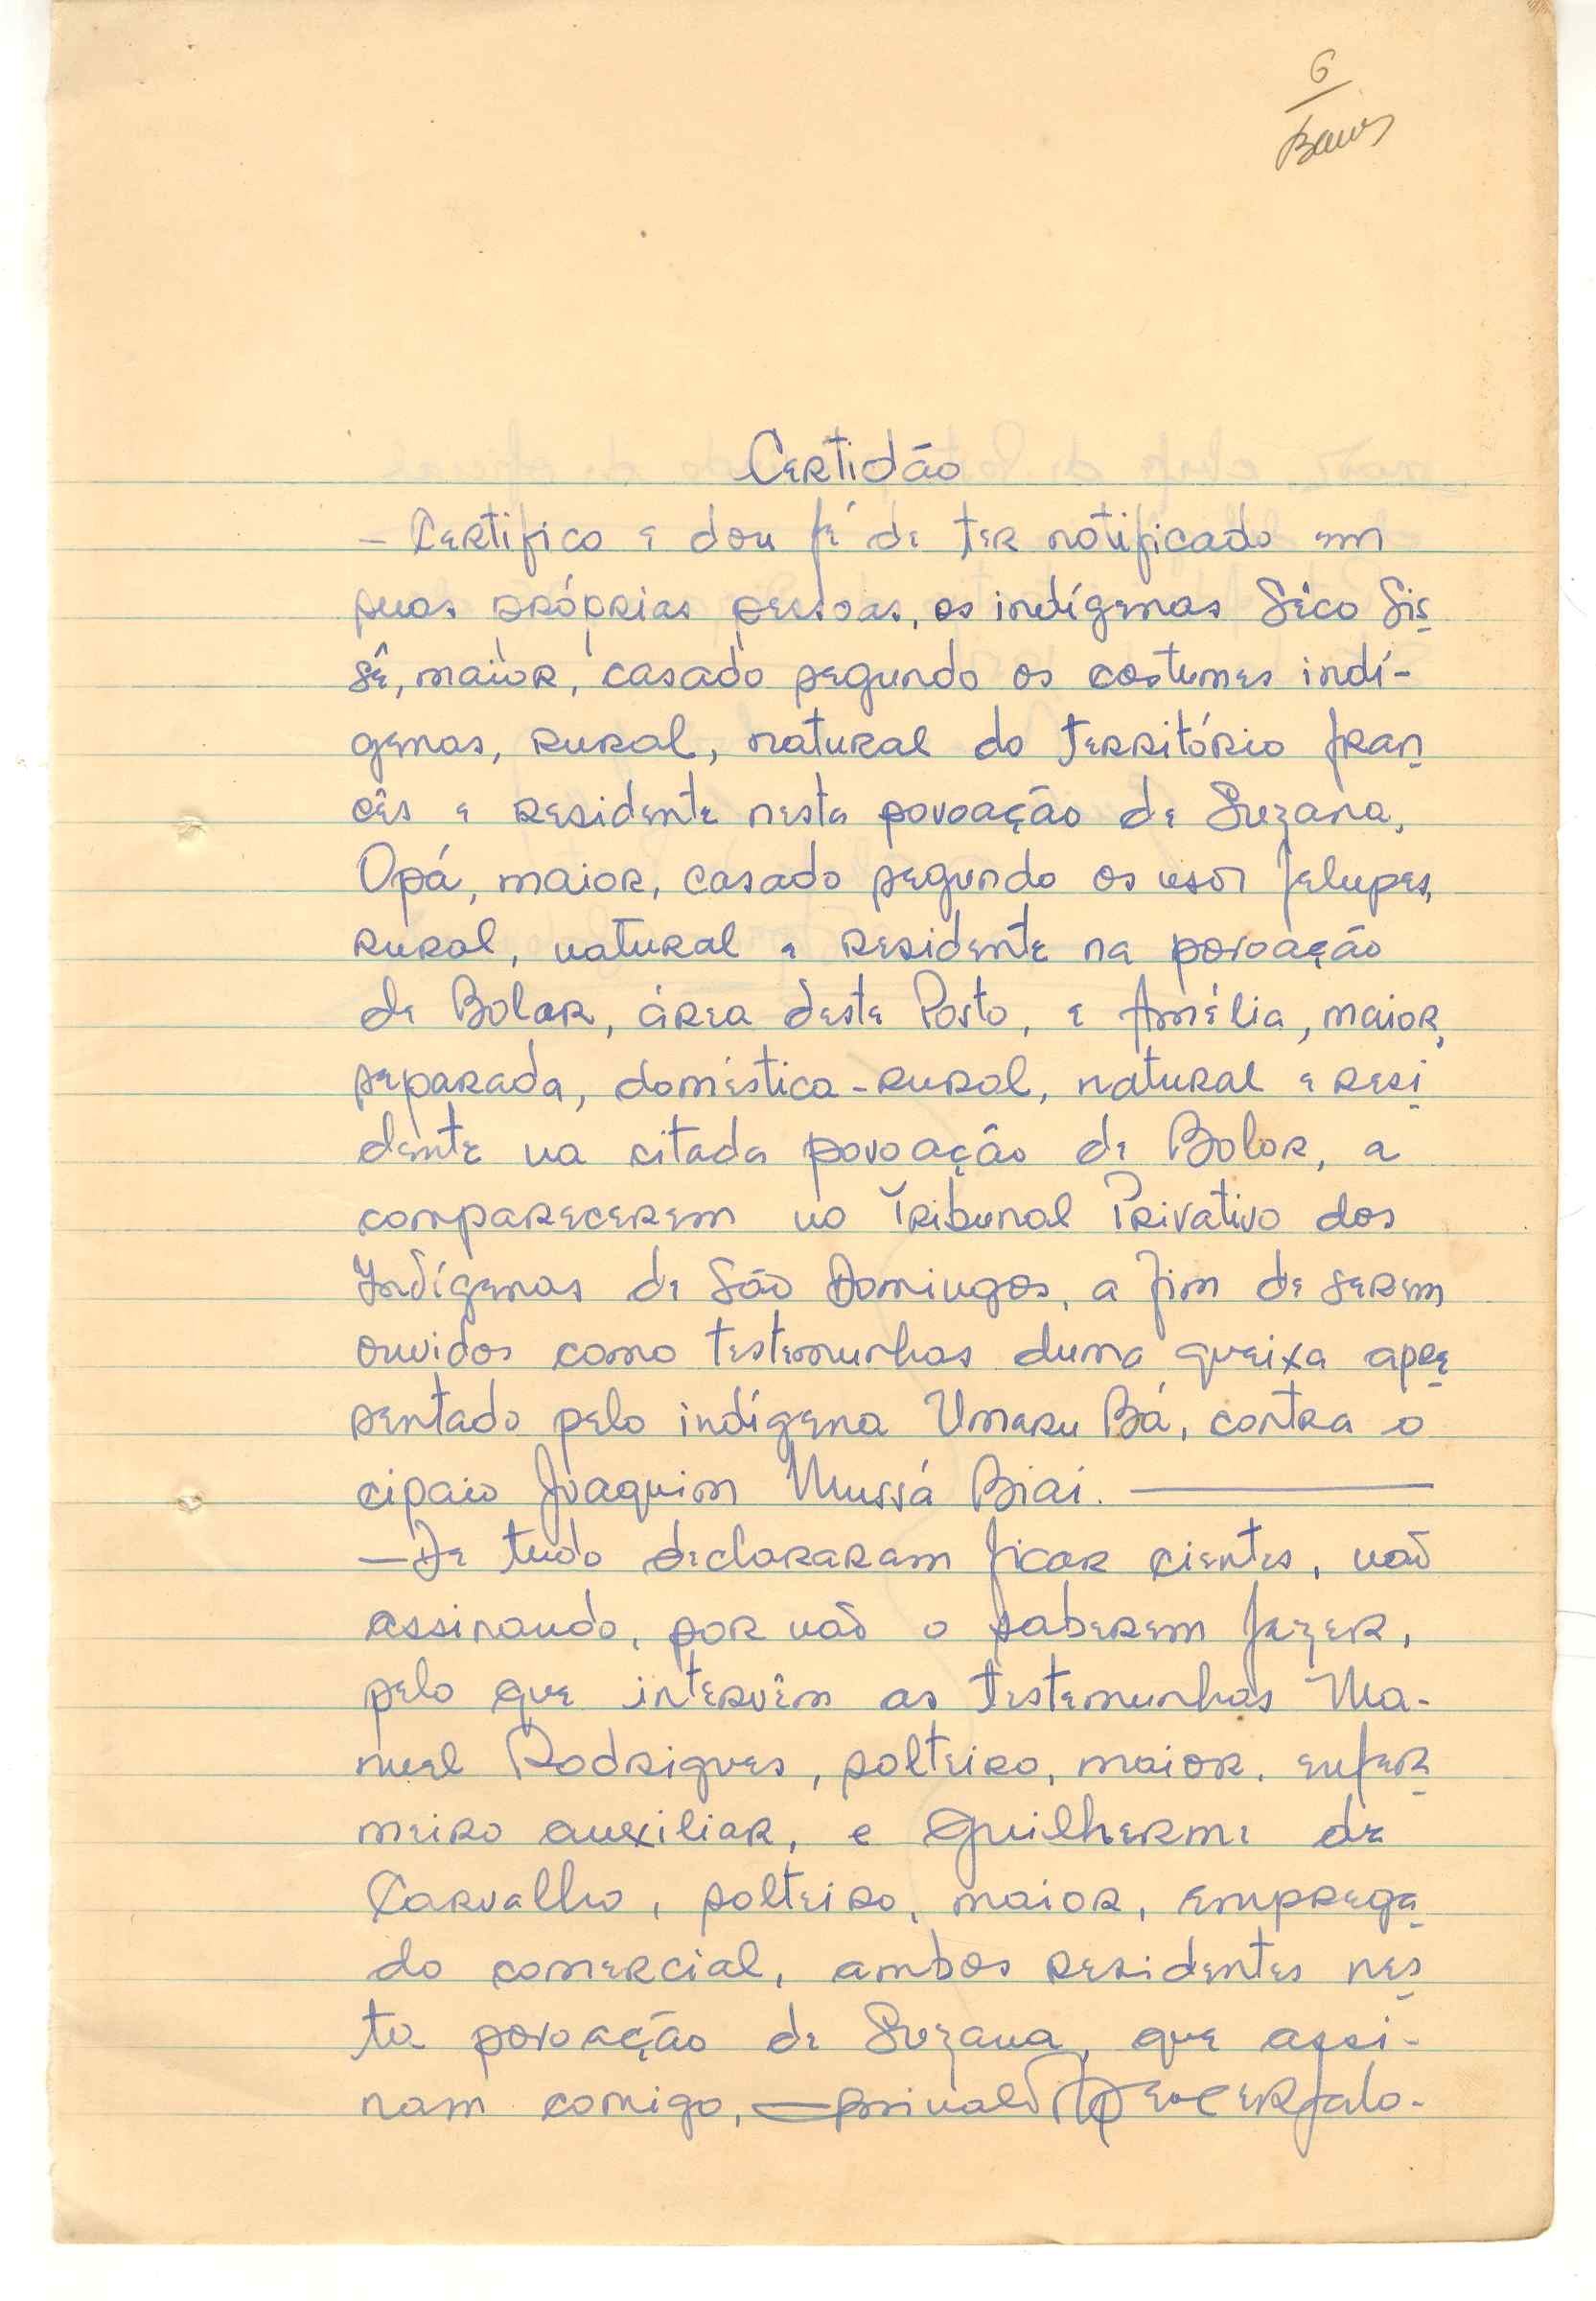 6
Certidão
- Certifico e dou fé de ter notificado em
suas próprias pessoas, os indígenas Séco Sis
sê, maior, casado segundo os costumes indí-
genas, rural, natural do território fran
cês e residente nesta povoação de Suzana,
Opá, maior, casado segundo os usos felupes,
rural, natural e residente na povoação
de Bolor, área deste Posto, e Amélia, maior,
separada, doméstica-rural, natural e resi
dente na citada povoação de Bolor, a
comparecerem no Tribunal Privativo dos
Indígenas de São Domingos, a fim de serem
ouvidos como testemunhas duma queixa apre
sentado pelo indígena Umaru Bá, contra o
cipaio Joaquim Mussá Biai.
- De tudo declararam ficar cientes, não
assinando, por não o saberem fazer,
pelo que intervêm as testemunhas Ma-
nuel Rodrigues, solteiro, maior, enfer
meiro auxiliar, e Guilherme de
Carvalho, solteiro, maior, emprega
do comercial, ambos residentes nes
ta povoação de Suzana, que assi-
nam comigo,